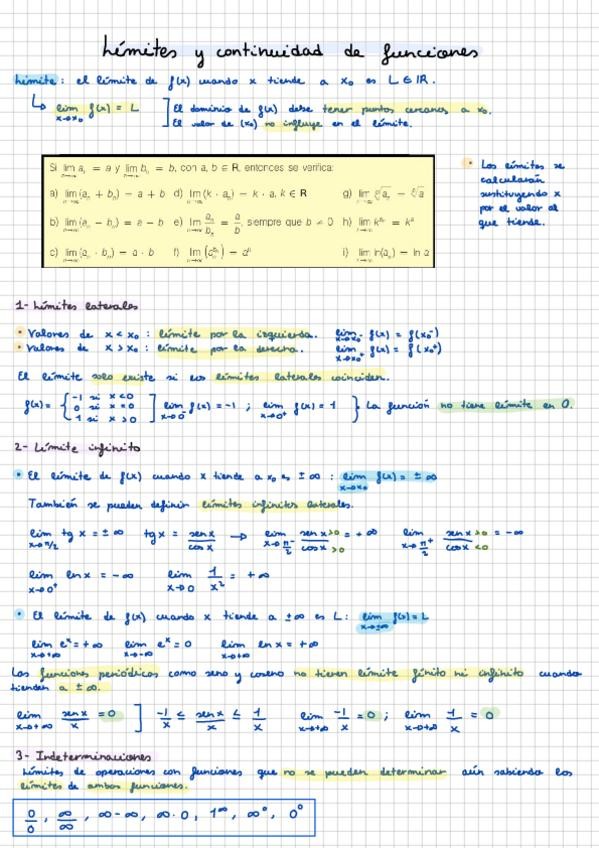 Límites y continuidad de funciones
Límite: el límite de f(x) cuando x tiende a x₀ es L ∈ IR.
↳ lim x→x₀ f(x) = L ] El dominio de f(x) debe tener puntos cercanos a x₀.
El valor de (x₀) no influye en el límite.
Si lim n→∞ aₙ = a y lim n→∞ bₙ = b, con a, b ∈ R, entonces se verifica:
a) lim n→∞ (aₙ + bₙ) = a + b d) lim n→∞ (k · aₙ) = k · a, k ∈ R g) lim n→∞
b) lim n→∞ (aₙ − bₙ) = a − b e) lim n→∞ aₙ/bₙ = a/b, siempre que b ≠ 0 h) lim n→∞ k^aₙ = k^a
c) lim n→∞ (aₙ · bₙ) = a · b f) lim n→∞ i) lim n→∞ ln(aₙ) = ln a
• Los límites se
calcularán
sustituyendo x
por el valor al
que tiende.
1- Límites laterales
• Valores de x < x₀ : límite por la izquierda. lim x→x₀⁻ f(x) = f(x₀⁻)
• Valores de x > x₀ : límite por la derecha. lim x→x₀⁺ f(x) = f(x₀⁺)
El límite solo existe si los límites laterales coinciden.
f(x) = { -1 si x<0
0 si x=0
1 si x>0 ] lim x→0⁻ f(x) = -1 ; lim x→0⁺ f(x) = 1 } La función no tiene límite en 0.
2- Límite infinito
• El límite de f(x) cuando x tiende a x₀ es ±∞ : lim x→x₀ f(x) = ±∞
También se pueden definir límites infinitos laterales.
lim x→π/2 tg x = ±∞ tg x = sen x/cos x → lim x→π/2⁻ sen x>0/cos x>0 = +∞ lim x→π/2⁺ sen x>0/cos x<0 = -∞
lim x→0⁺ ln x = -∞ lim x→0 1/x² = +∞
• El límite de f(x) cuando x tiende a ±∞ es L: lim x→±∞ f(x) = L
lim x→+∞ eˣ = +∞ lim x→-∞ eˣ = 0 lim x→+∞ ln x = +∞
Las funciones periódicas como seno y coseno no tienen límite finito ni infinito cuando
tienden a ±∞.
lim x→+∞ sen x/x = 0 ] -1/x ≤ sen x/x ≤ 1/x lim x→+∞ -1/x = 0 ; lim x→+∞ 1/x = 0
3- Indeterminaciones
Límites de operaciones con funciones que no se pueden determinar aún sabiendo los
límites de ambas funciones.
0/0, ∞/∞, ∞-∞, ∞·0, 1^∞, ∞⁰, 0⁰